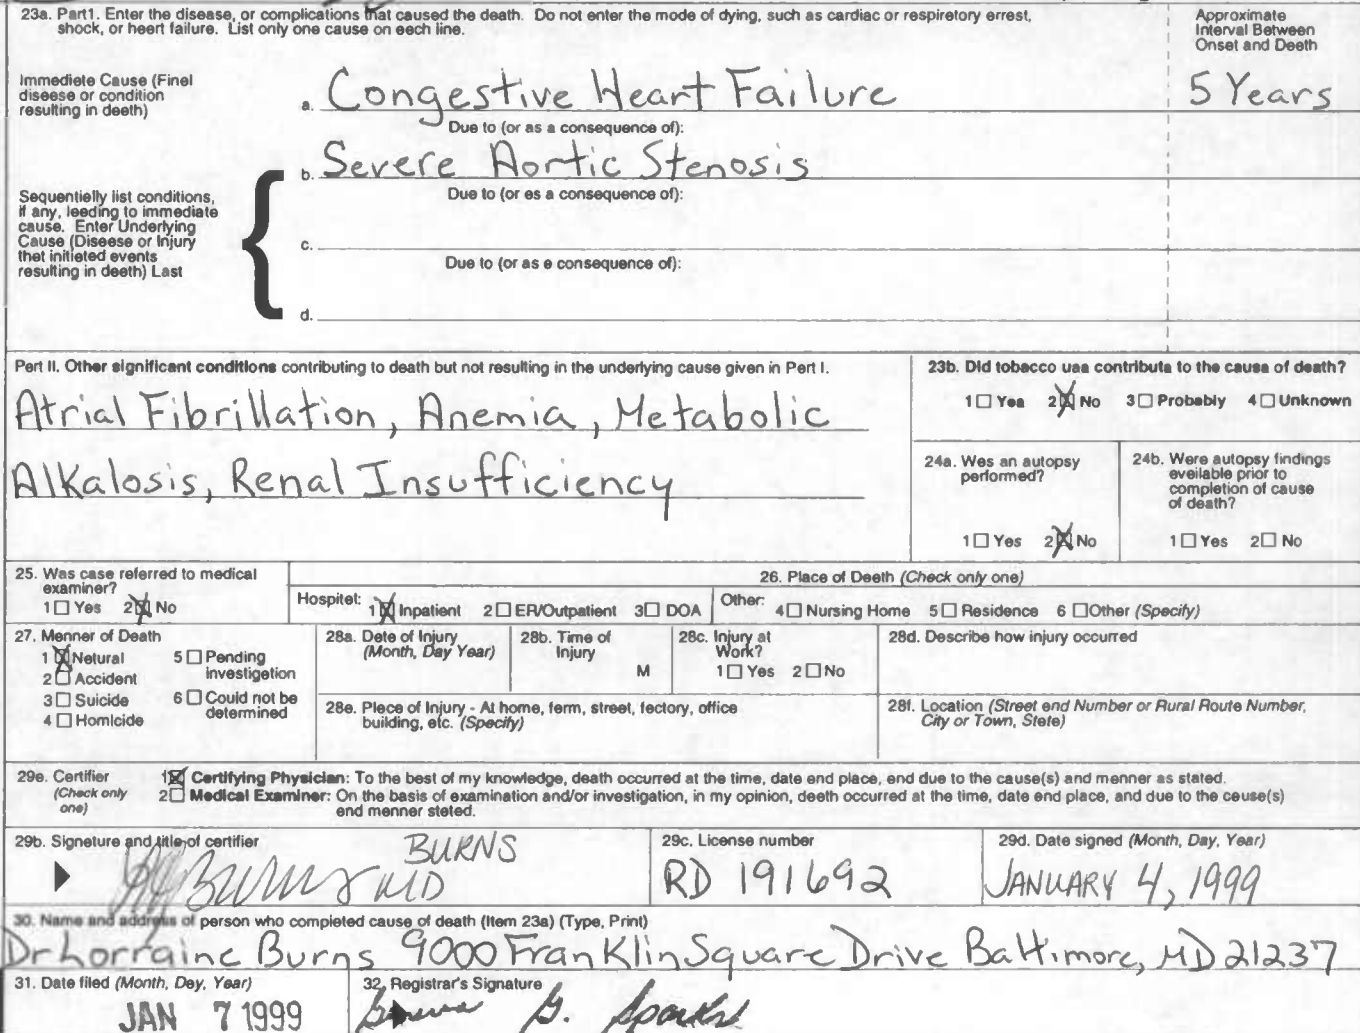 23a. Part1. Enter the disease, or complications that caused the death. Do not enter the mode of dying, such as cardiac or respiretory errest,
shock, or heert failure. List only one cause on eech line.
Approximate
Interval Between
Onset and Deeth
Immediete Cause (Finel
diseese or condition
resulting in deeth)
a. Congestive Heart Failure 5 Years
Due to (or as a consequence of):
b. Severe Aortic Stenosis
Sequentielly list conditions,
if any, leeding to immediate
cause. Enter Underlying
Cause (Diseese or Injury
thet initieted events
resulting in deeth) Last
Due to (or es a consequence of):
c.
Due to (or as e consequence of):
d.
Part II. Other significant conditions contributing to death but not resulting in the underlying cause given in Part I.
Atrial Fibrillation, Anemia, Metabolic
Alkalosis, Renal Insufficiency
23b. Did tobacco uaa contributa to the causa of death?
1 Yea 2 No 3 Probably 4 Unknown
24a. Wes an autopsy
performed?
1 Yes 2 No
24b. Were autopsy findings
eveilable prior to
completion of cause
of death?
1 Yes 2 No
25. Was case referred to medical
examiner?
1 Yes 2 No
26. Place of Deeth (Check only one)
Hospitel: 1 Inpatient 2 ER/Outpatient 3 DOA Other: 4 Nursing Home 5 Residence 6 Other (Specify)
27. Menner of Death
1 Netural 5 Pending
investigetion
2 Accident
3 Suicide 6 Could not be
determined
4 Homicide
28a. Dete of Injury
(Month, Day Year)
28b. Time of
Injury
M
28c. Injury at
Work?
1 Yes 2 No
28d. Describe how injury occurred
28e. Plece of Injury - At home, ferm, street, fectory, office
building, etc. (Specify)
28f. Location (Street end Number or Rural Route Number,
City or Town, Stete)
29e. Certifier
(Check only
one)
1 Certifying Physician: To the best of my knowledge, death occurred at the time, date end place, end due to the cause(s) and menner as stated.
2 Medical Examiner: On the basis of examination and/or investigation, in my opinion, deeth occurred at the time, date end place, and due to the ceuse(s)
end menner steted.
29b. Signeture and title of certifier
BURNS
Burns MD
29c. License number
RD 191692
29d. Date signed (Month, Day, Year)
JANUARY 4, 1999
30. Name and address of person who completed cause of death (Item 23a) (Type, Print)
Dr Lorraine Burns 9000 Franklin Square Drive Baltimore, MD 21237
31. Date filed (Month, Dey, Year)
JAN 7 1999
32. Registrar's Signature
G. Sparks